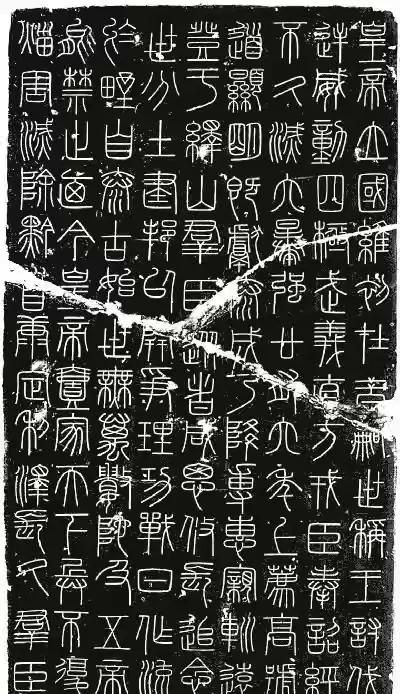 皇帝立國維初在昔嗣世稱王討伐
逆威動四極武義直方戎臣奉詔經
不久滅六暴強廿有六年上薦高號
道顯明既獻泰成乃降專惠親巡遠
登于繹山群臣從者咸思攸長追念
世分土建邦以開爭理功戰日作流
於野自泰古始世無萬數陀及五帝
能禁止乃今皇帝壹家天下兵不復
災害滅除黔首康定利澤長久群臣